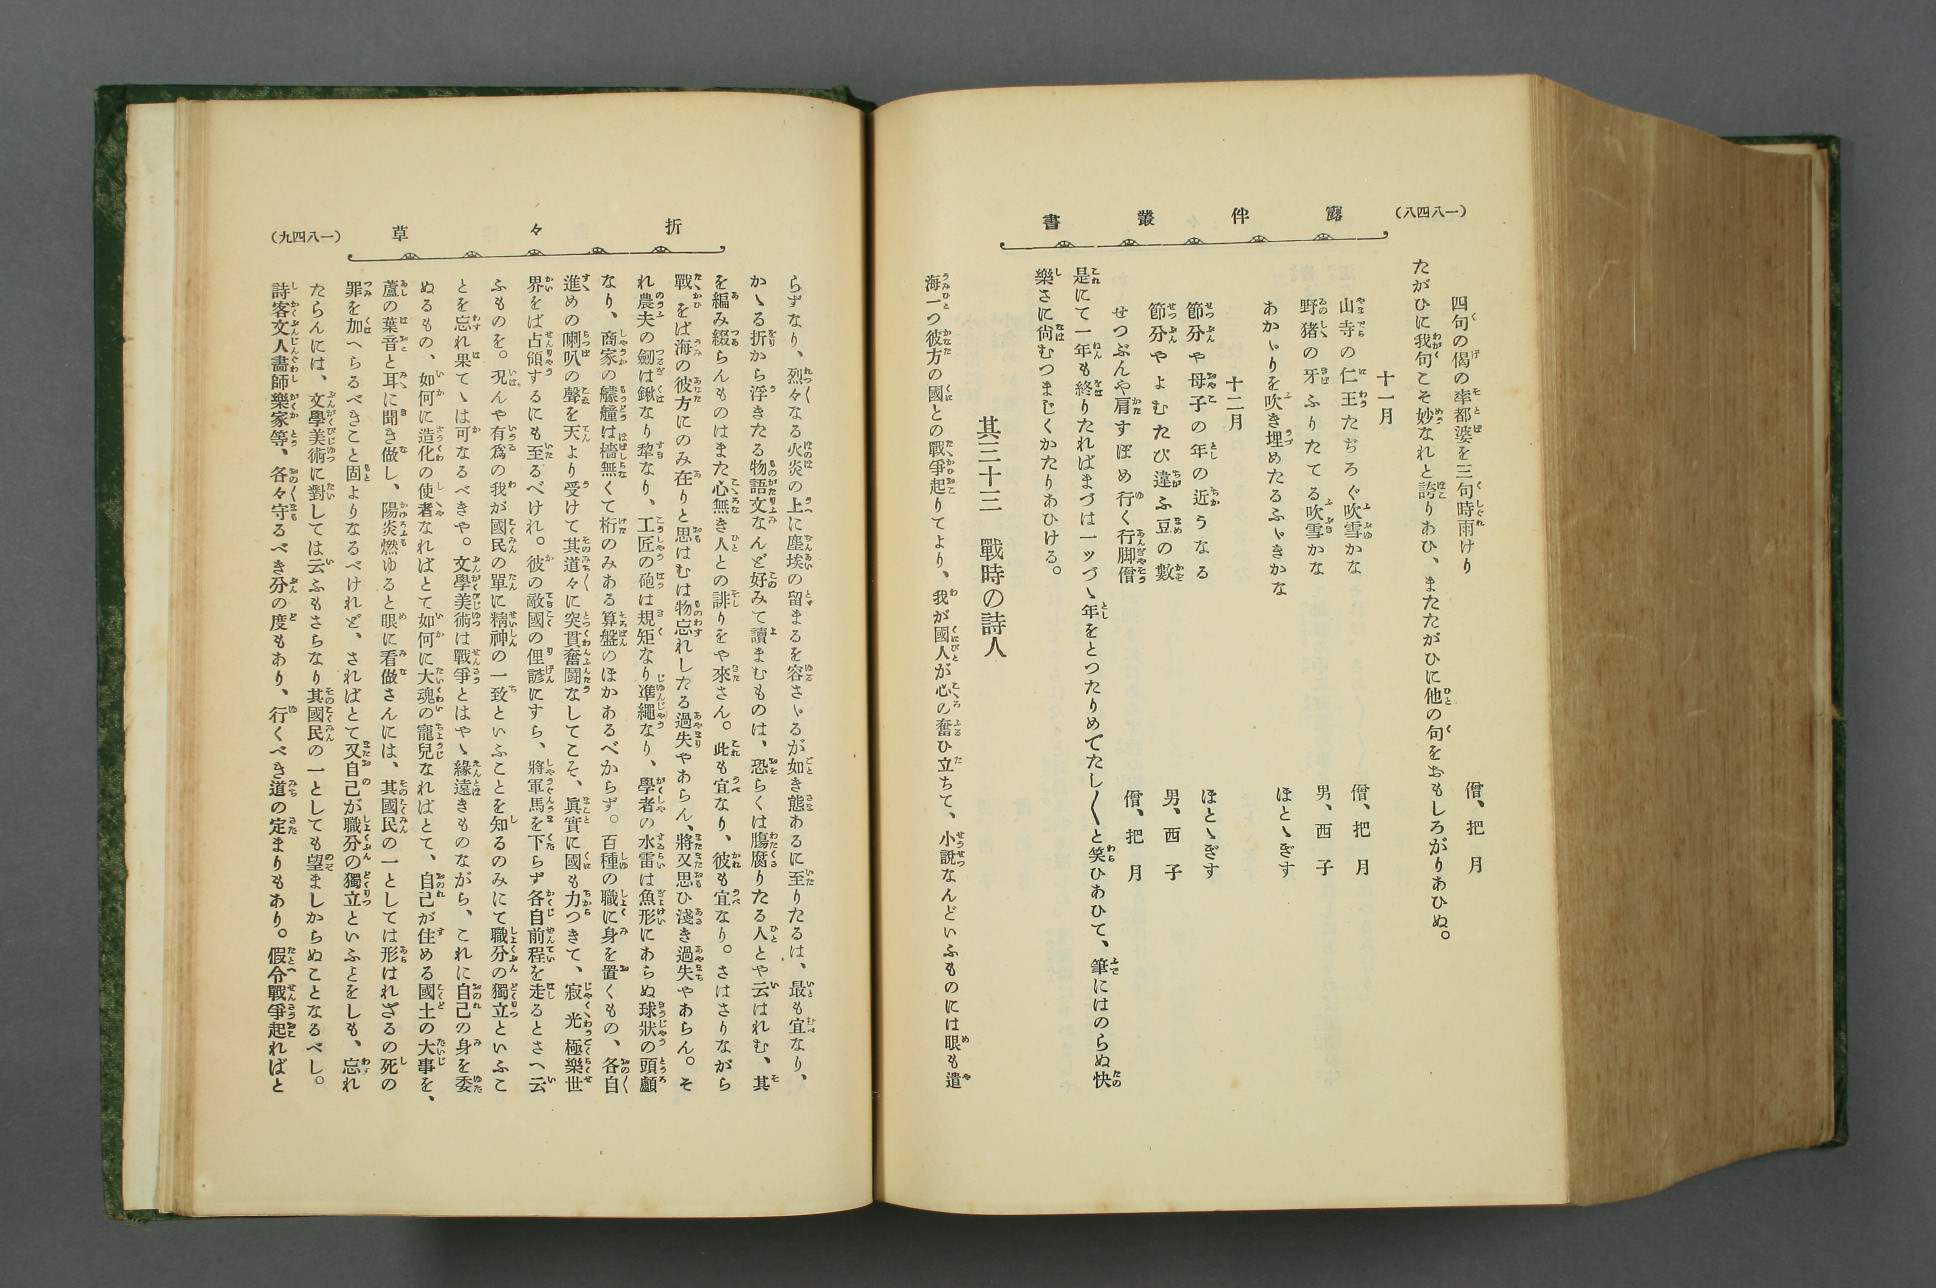 (一八四八)
露伴叢書
四句の偈の率都婆を三句時雨けり　僧、把月
たがひに我句こそ妙なれと誇りあひ、またたがひに他の句をおもしろがりあひぬ。
十一月
山寺の仁王たぢろぐ吹雪かな　僧、把月
野猪の牙ふりたてる吹雪かな　男、西子
あかゝりを吹き埋めたるふゞきかな　ほとゝぎす
十二月
節分や母子の年の近うなる　ほとゝぎす
節分やよむたび違ふ豆の數　男、西子
せつぶんや肩すぼめ行く行脚僧　僧、把月
是にて一年も終りたればまづは一ッづゝ年をとつたりめでたし〱と笑ひあひて、筆にはのらぬ快
樂さに尙むつまじくかたりあひける。
其三十三　戰時の詩人
海一つ彼方の國との戰爭起りてより、我が國人が心の奮ひ立ちて、小説なんどいふものには眼も遣
折々草
(一八四九)
らずなり、烈々なる火炎の上に塵埃の留まるを容さゞるが如き態あるに至りたるは、最も宜なり、
かゝる折から浮きたる物語文なんど好みて讀まむものは、恐らくは膓腐りたる人とや云はれむ、其
を編み綴らんものはまた心無き人との誹りをや來さん。此も宜なり、彼も宜なり。さはさりながら
戰をば海の彼方にのみ在りと思はむは物忘れしたる過失やあらん、將又思ひ淺き過失やあらん。そ
れ農夫の劒は鍬なり犂なり、工匠の砲は規矩なり準繩なり、學者の水雷は魚形にあらぬ球狀の頭顱
なり、商家の艨艟は檣無くて桁のみある算盤のほかあるべからず。百種の職に身を置くもの、各自
進めの喇叭の聲を天より受けて其道々に突貫奮鬪なしてこそ、眞實に國も力つきて、寂光極樂世
界をば占領するにも至るべけれ。彼の敵國の俚諺にすら、將軍馬を下らず各自前程を走るとさへ云
ふものを。況んや有爲の我が國民の單に精神の一致といふことを知るのみにて職分の獨立といふこ
とを忘れ果てゝは可なるべきや。文學美術は戰爭とはやゝ緣遠きものながら、これに自己の身を委
ぬるもの、如何に造化の使者なればとて如何に大魂の寵兒なればとて、自己が住める國土の大事を、
蘆の葉音と耳に聞き做し、陽炎燃ゆると眼に看做さんには、其國民の一としては形はれざるの死の
罪を加へらるべきこと固よりなるべけれど、さればとて又自己が職分の獨立といふことをしも、忘れ
たらんには、文學美術に對しては云ふもさらなり其國民の一としても望ましからぬことなるべし。
詩客文人畫師樂家等、各々守るべき分の度もあり、行くべき道の定まりもあり。假令戰爭起ればと